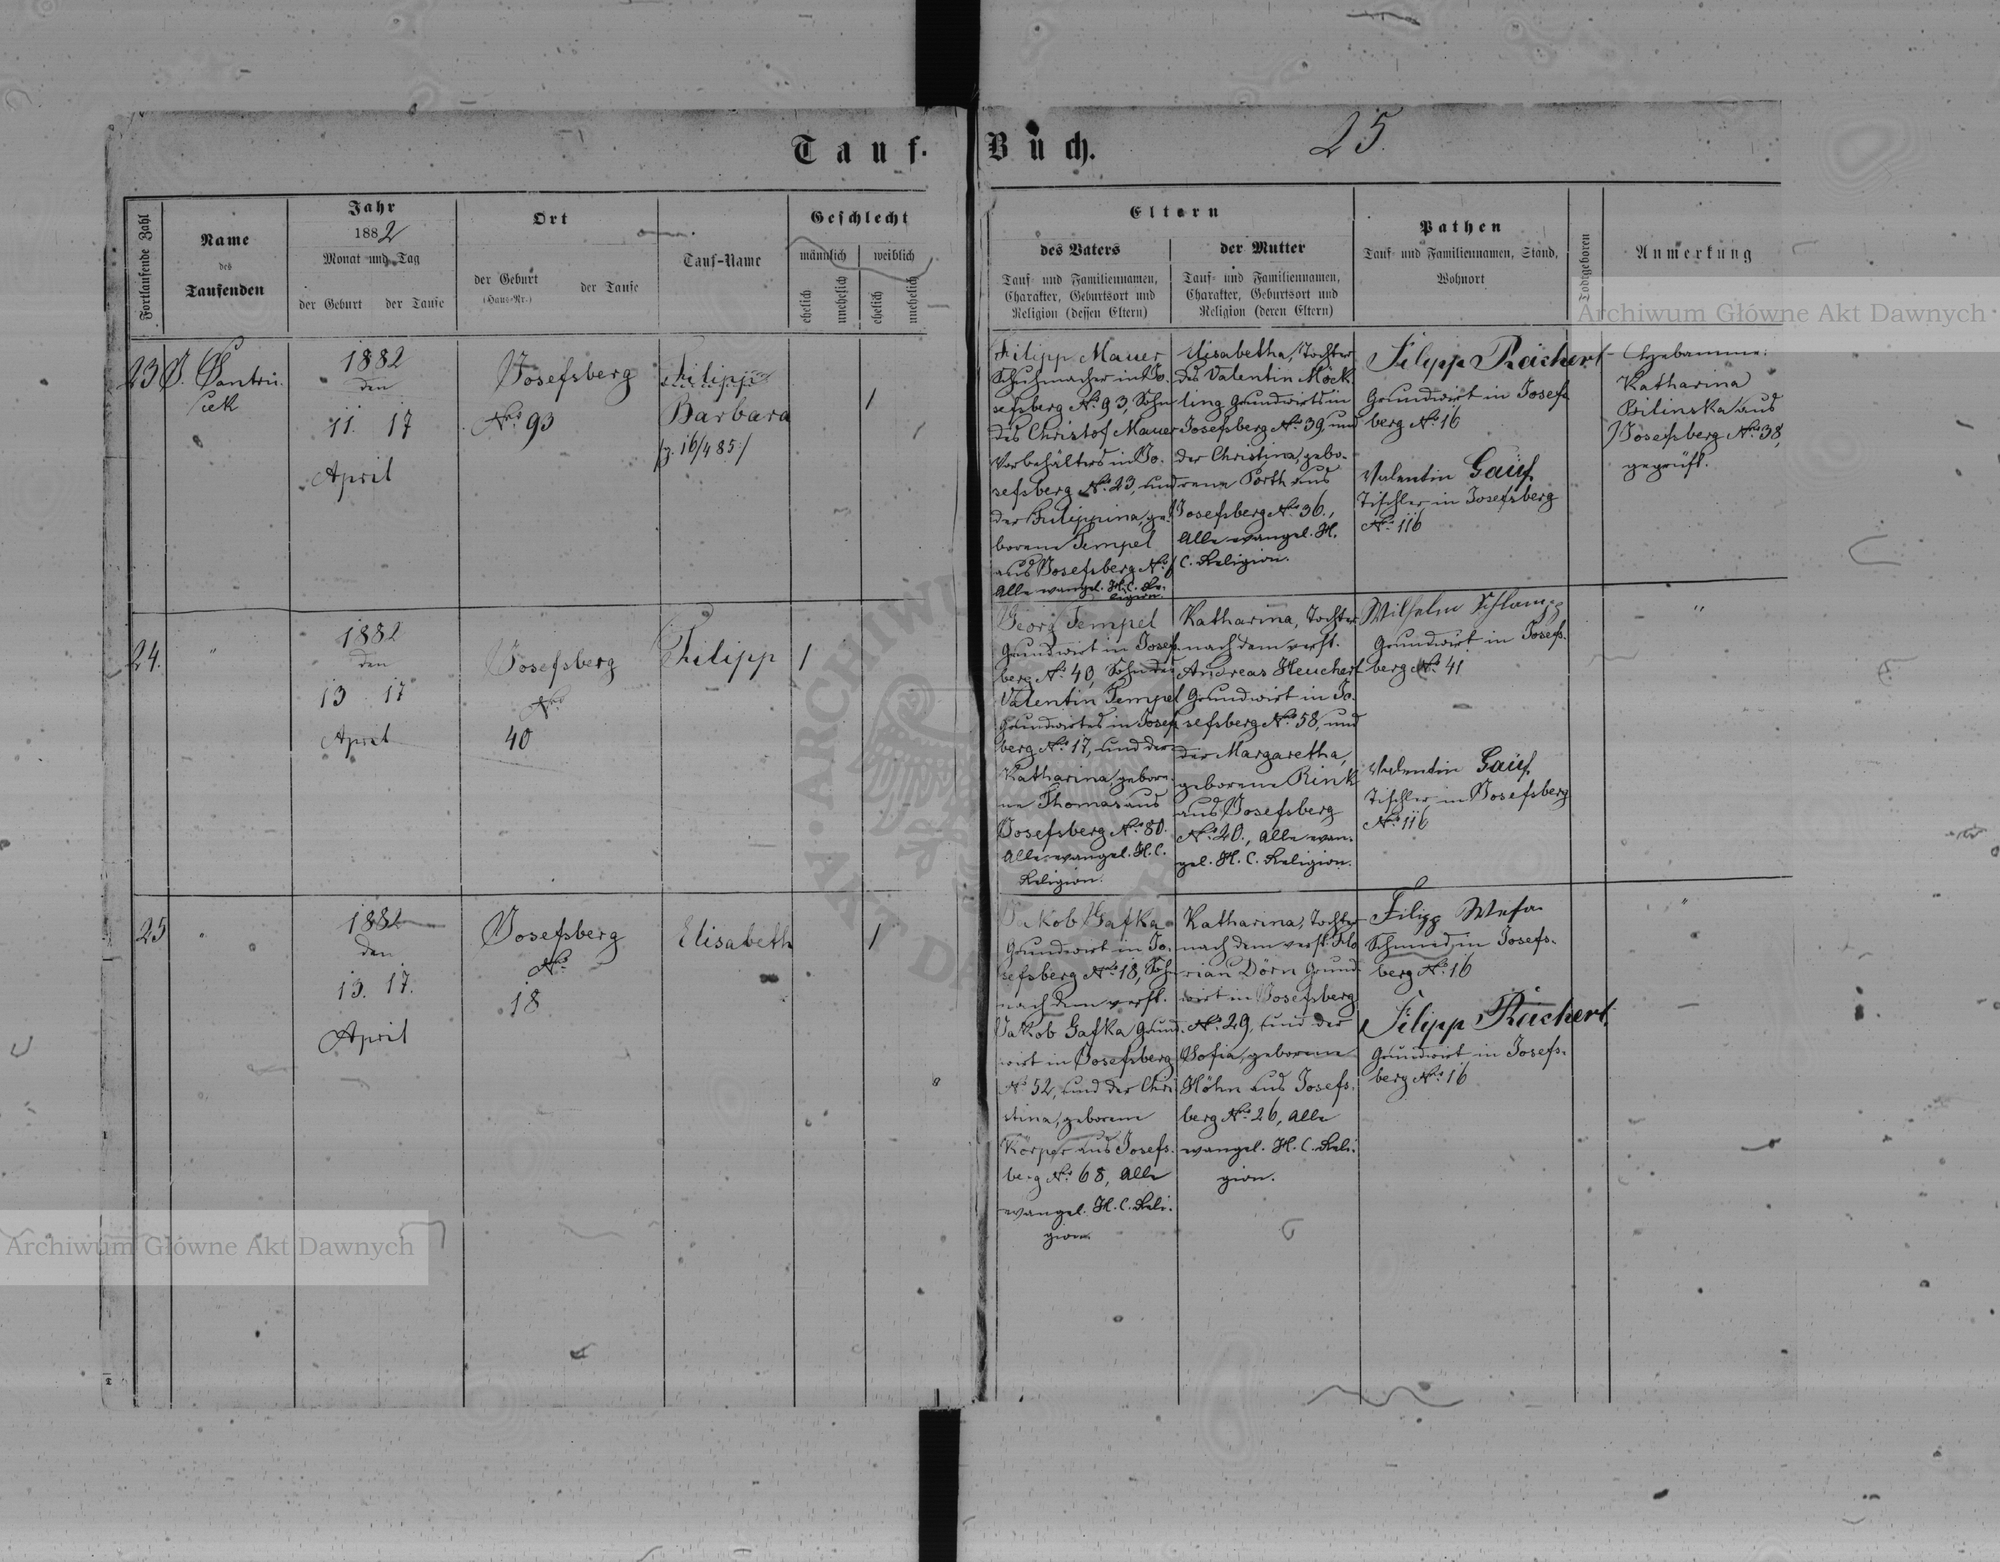 Tauf-Buch.
25.
Fortlaufende Zahl
Name
des
Taufenden
Jahr
1882
Monat und Tag
der Geburt
der Taufe
Ort
der Geburt
(Haus-Nr.)
der Taufe
Tauf-Name
Geschlecht
männlich
weiblich
ehelich
unehelich
ehelich
unehelich
Eltern
des Vaters
Tauf- und Familiennamen,
Charakter, Geburtsort und
Religion (dessen Eltern)
der Mutter
Tauf- und Familiennamen,
Charakter, Geburtsort und
Religion (deren Eltern)
Pathen
Tauf- und Familiennamen, Stand,
Wohnort
Todtgeboren
Anmerkung
23
1882
den
11. 17
April
Josefsberg
Nro 93
Filippi
Barbara
/z. 16/485/
1
Filipp Mauer
Schuhmacher in Jo-
sefsberg No. 93, Sohn
des Christof Mauer
Vorbehälters in Jo-
sefsberg No. 23, und
der Filippina, ge-
borene Tempel
aus Josefsberg No.
Alle evangel. H. C. Re-
ligion.
Elisabetha, Tochter
des Valentin Möck
ling Grundwirts in
Josefsberg No. 39, und
der Christina, gebo-
rene Porth aus
Josefsberg No. 36.,
Alle evangel. H.
C. Religion.
Filipp Reichert
Grundwirt in Josefs
berg No. 16
Valentin Gauf
Tischler in Josefsberg
No. 116
Hebamme:
Katharina
Bilinska aus
Josefsberg Nro. 38,
geprüft.
24.
"
1882
den
13 17
April
Josefsberg
Nro
40
Filipp
1
Georg Tempel
Grundwirt in Josefs
berg No. 40, Sohn des
Valentin Tempel
Grundwirtes in Josefs
berg No. 17, und der
Katharina, gebore-
ne Thomas aus
Josefsberg No. 80.
Alle evangel. H. C.
Religion.
Katharina, Tochter
nach dem verst.
Andreas Heuchert
Grundwirt in Jo-
sefsberg No. 58, und
der Margaretha,
geborene Rink
aus Josefsberg
No. 20., Alle evan-
gel. H. C. Religion.
Wilhelm
Grundwirt in Josefs-
berg No. 41
Valentin Gauf
Tischler in Josefsberg
No. 116
"
25
"
1882
den
13. 17.
April
Josefsberg
No.
18
Elisabeth
1
Jakob Gafka
Grundwirt in Jo-
sefsberg No. 18, Sohn
nach dem verst.
Jakob Gafka Grund-
wirt in Josefsberg
No 52, und der Chri
stina, geborene
Körper aus Josefs-
berg No. 68, Alle
evangel. H. C. Reli-
gion.
Katharina, Tochter
nach dem verst. Flo
rian Dörn Grund-
wirt in Josefsberg
No. 29, und der
Sofia, geborene
Höhn aus Josefs-
berg No. 26, Alle
evangel. H. C. Reli-
gion.
Filipp
Schmied in Josefs-
berg No. 16
Filipp Reichert
Grundwirt in Josefs-
berg No. 16
"
Archiwum Główne Akt Dawnych
Archiwum Główne Akt Dawnych